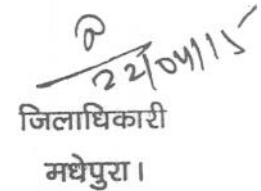 22/04/15
जिलाधिकारी
मधेपुरा।